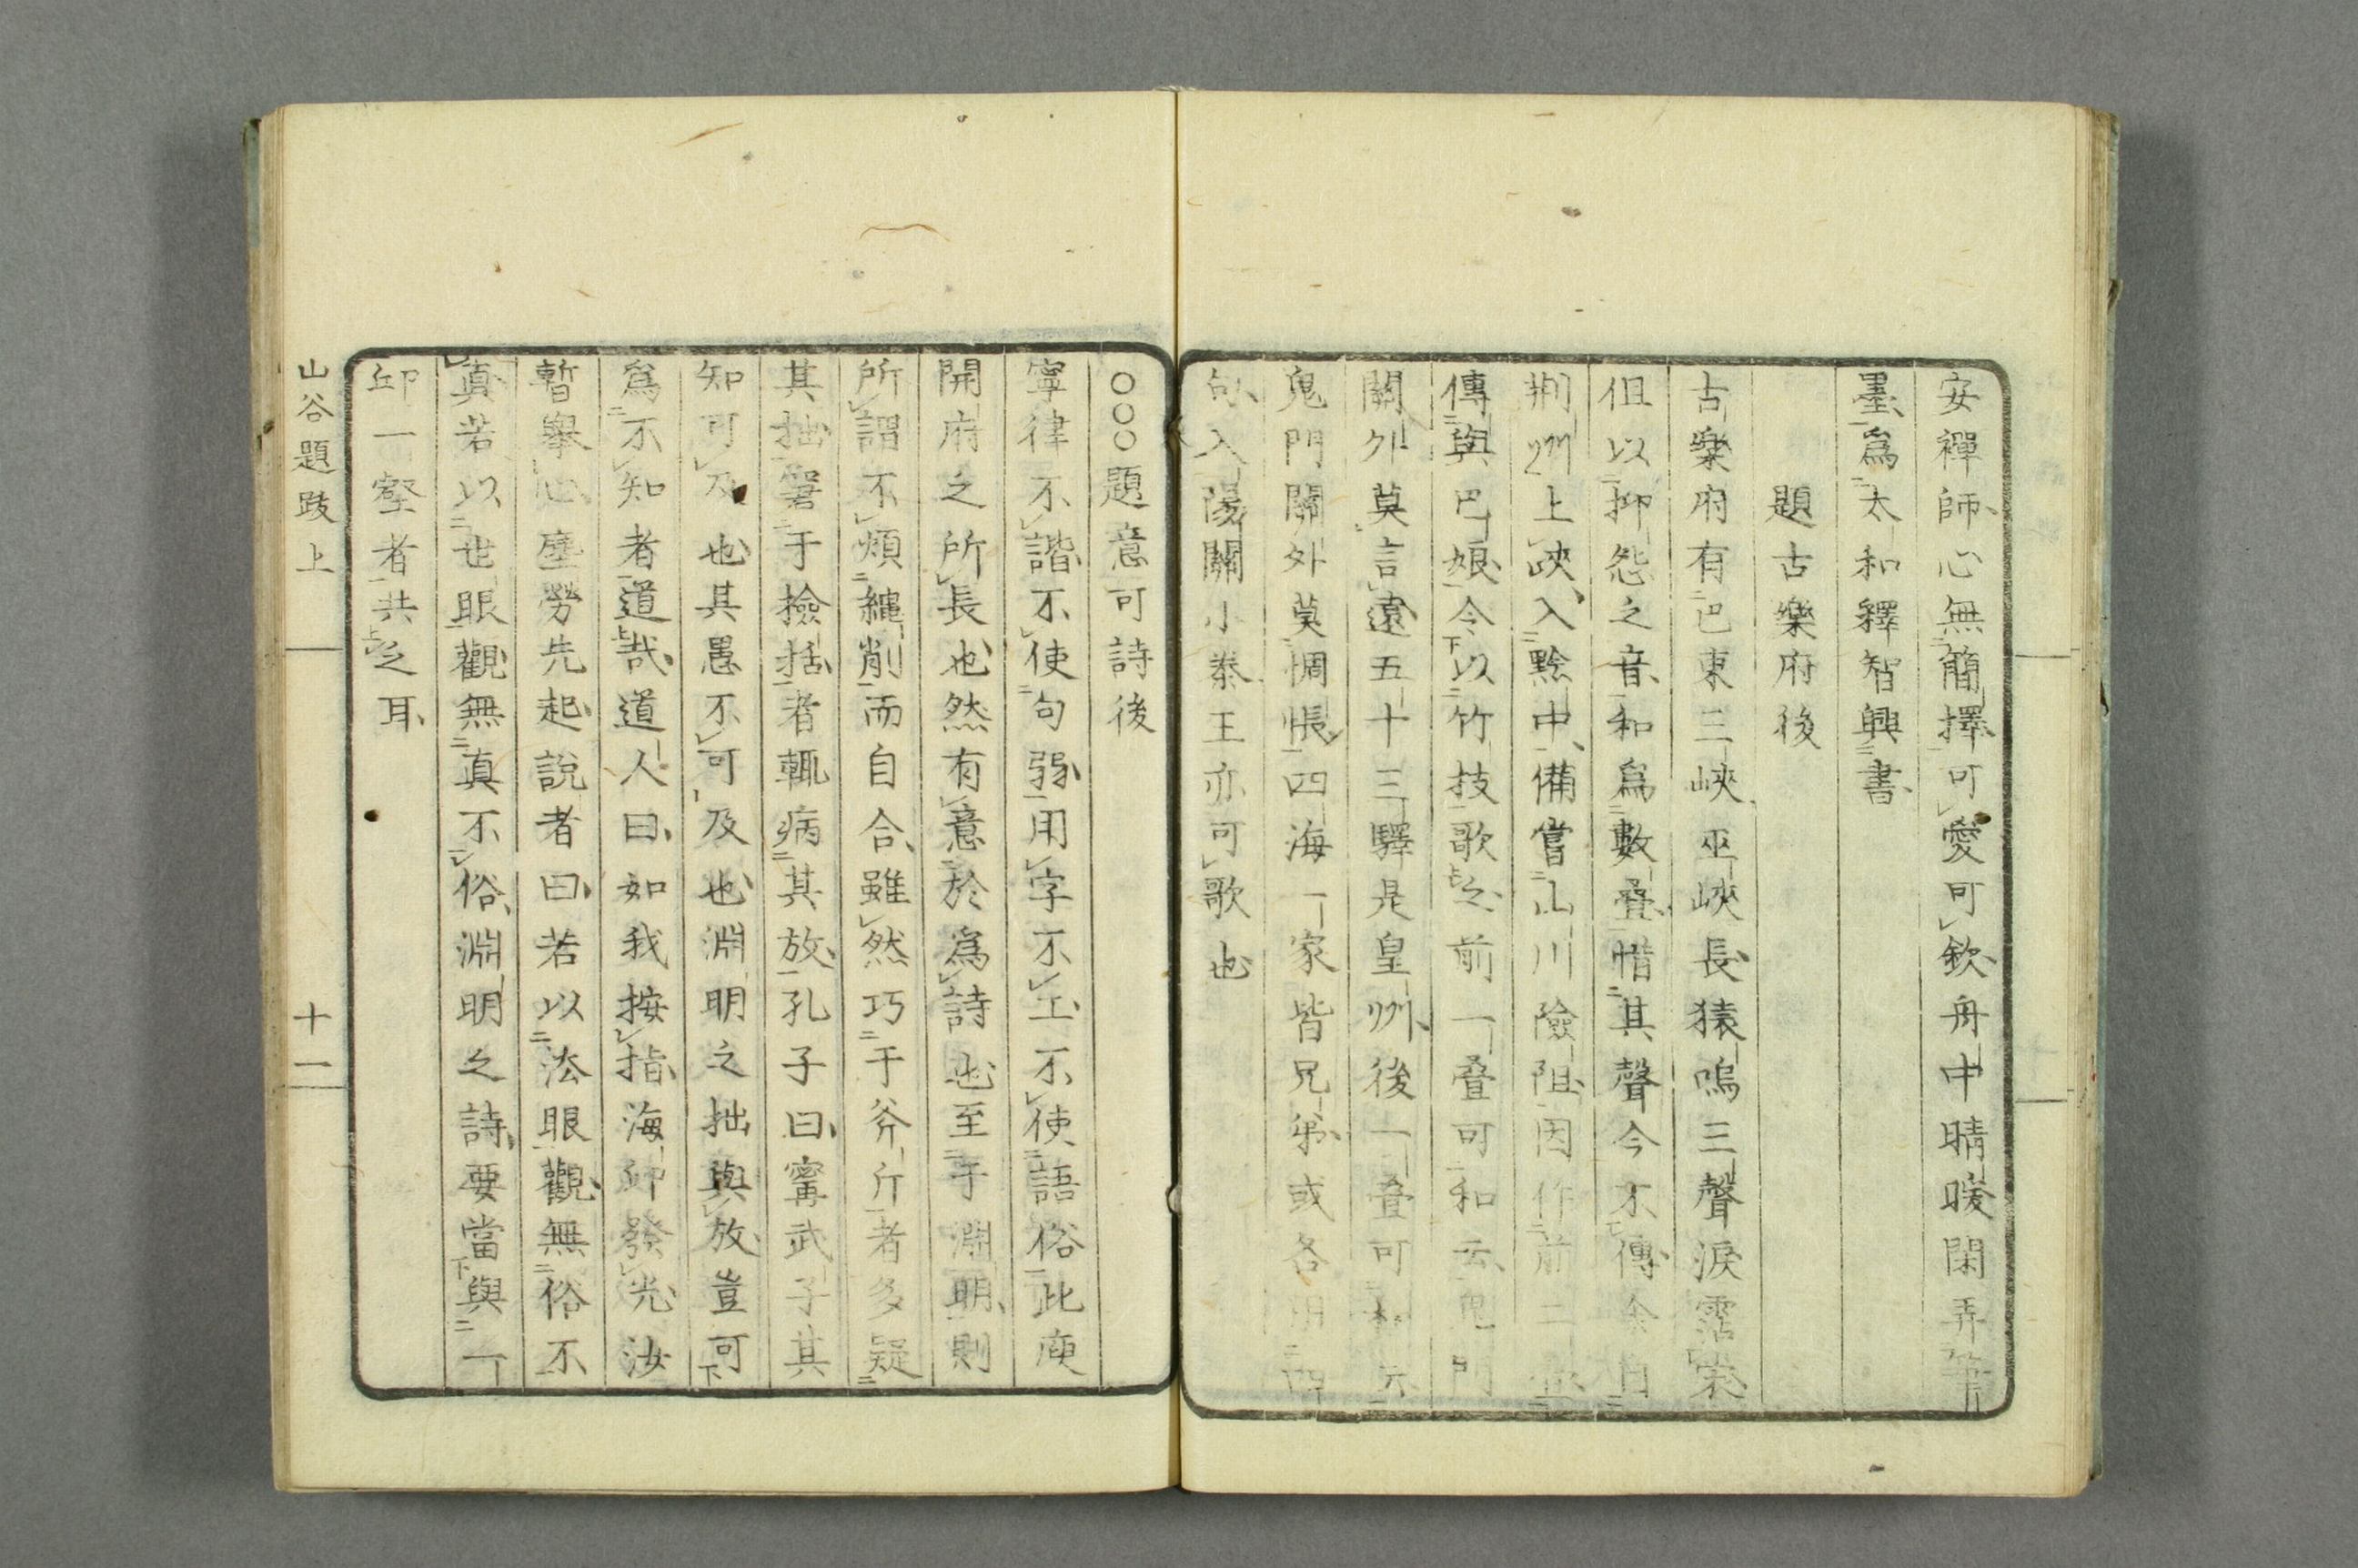 安禪師心無簡擇可愛可欽舟中晴暖閑弄筆
墨爲太和釋智興書
題古樂府後
古樂府有巴東三峽巫峽長猿鳴三聲淚霑裳
但以抑怨之音和爲數疊惜其聲今不傳余自
荆州上峽入黔中備嘗山川險阻因作前二疊
傳與巴娘令以竹技歌之前一疊可和云鬼門
關外莫言遠五十三驛是皇州後一疊可和云
鬼門關外莫惆悵四海一家皆兄弟或各用四
句入陽關小秦王亦可歌也
○○○題意可詩後
寧律不諧不使句弱用字不工不使語俗此庾
開府之所長也然有意於爲詩也至于淵明則
所謂不煩繩削而自合雖然巧于斧斤者多疑
其拙窘于撿括者輒病其放孔子曰寗武子其
知可及也其愚不可及也淵明之拙與放豈可
爲不知者道哉道人曰如我按指海印發光汝
暫舉心塵勞先起說者曰若以法眼觀無俗不
真若以世眼觀無真不俗淵明之詩要當與一
邱一壑者共之耳
山谷題跋上
十一